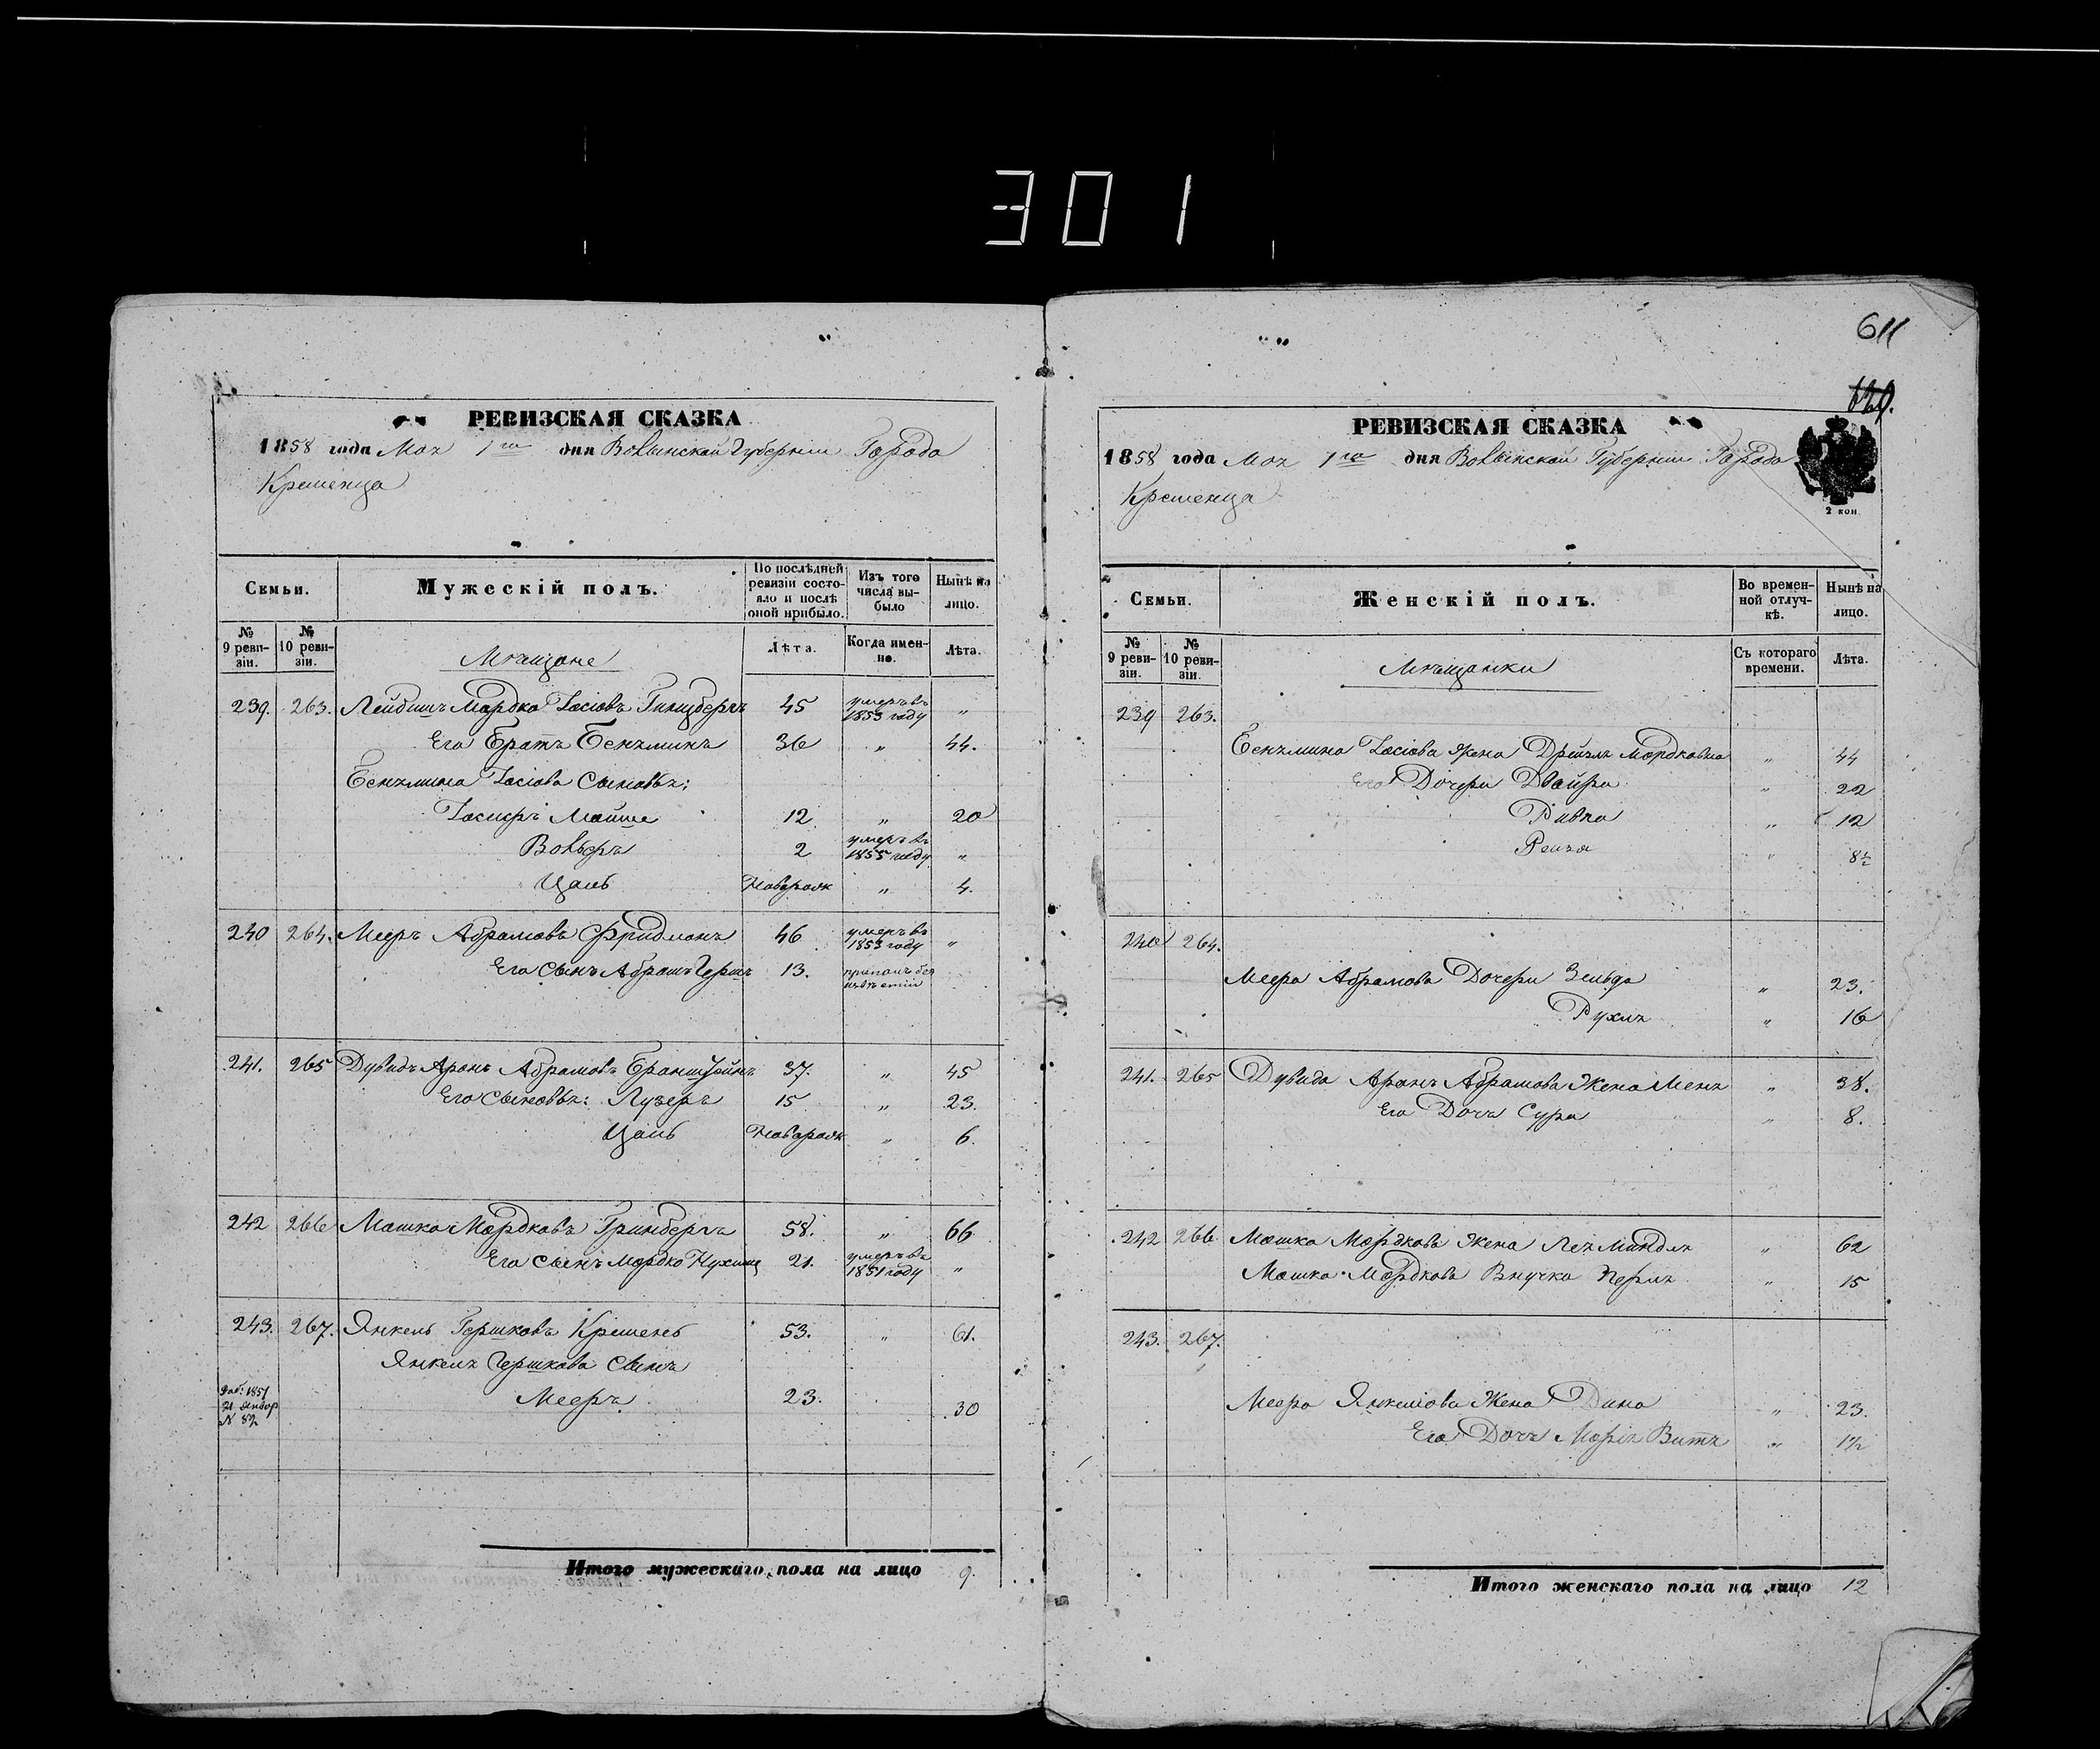 301
611
129.
РЕВИЗСКАЯ СКАЗКА
1858 года Мая 1го дня Волынской Губерніи Города
Кременца
Семьи.
Мужескій полъ.
По послѣдней ревизіи состояло и послѣ оной прибыло.
Изъ того числа выбыло
Нынѣ на лицо.
№ 9 ревизіи.
№ 10 ревизіи.
Мѣщане
Лѣта.
Когда именно.
Лѣта.
239. 263. Лейбишъ Мордко Іосіовъ Гинцбергъ 45 умеръ въ 1853 году „
Его Братъ Беньминъ 36 „ 44.
Беньмина Іосіова Сыновья:
Іосиеръ Мойше 12 „ 20
Вольеръ 2 умеръ въ 1855 году „
Цаль Новорож „ 4.
240 264. Мееръ Абрамовъ Фридманъ 46 умеръ въ 1853 году „
Его Сынъ Абрамъ Гершъ 13. пропалъ без извѣстій
241. 265 Дувидъ Аронъ Абрамовъ 37. „ 45
Его Сыновья: Лузеръ 15 „ 23.
Цаль Новорож „ 6.
242 266 Мошко Мордковъ Гринбергъ 58. „ 66
Его Сынъ Мордко Нухимъ 21. умеръ въ 1851 году „
243. 267. Янкель Гершковъ Кременъ 53. „ 61.
Янкеля Гершкова Сынъ
Мееръ 23. 30
1851
21
N 82
Итого мужескаго пола на лицо 9.
РЕВИЗСКАЯ СКАЗКА
1858 года Мая 1го дня Волынской Губерніи Города
Кременца
2 коп
Семьи.
Женскій полъ.
Во временной отлучкѣ.
Нынѣ на лицо.
№ 9 ревизіи.
№ 10 ревизіи.
Мѣщанки
Съ котораго времени.
Лѣта.
239 263.
Беньмина Іосіова жена Дрейзя Мордковна „ 44
Его Дочери Двойра „ 22
Ривка „ 12
Рейзя „ 8½
240 264.
Меера Абрамова Дочери Зельда „ 23.
Рухля „ 16
241. 265 Дувида Аронъ Абрамова Жена Меня „ 38.
Его Дочь Сура „ 8.
242 266 Мошка Мордкова Жена Лея Миндля „ 62
Мошка Мордкова Внучка Перля „ 15
243. 267.
Меера Янкиліова Жена Дина „ 23.
Его Дочь Марія Витя „ 1½
Итого женскаго пола на лицо 12